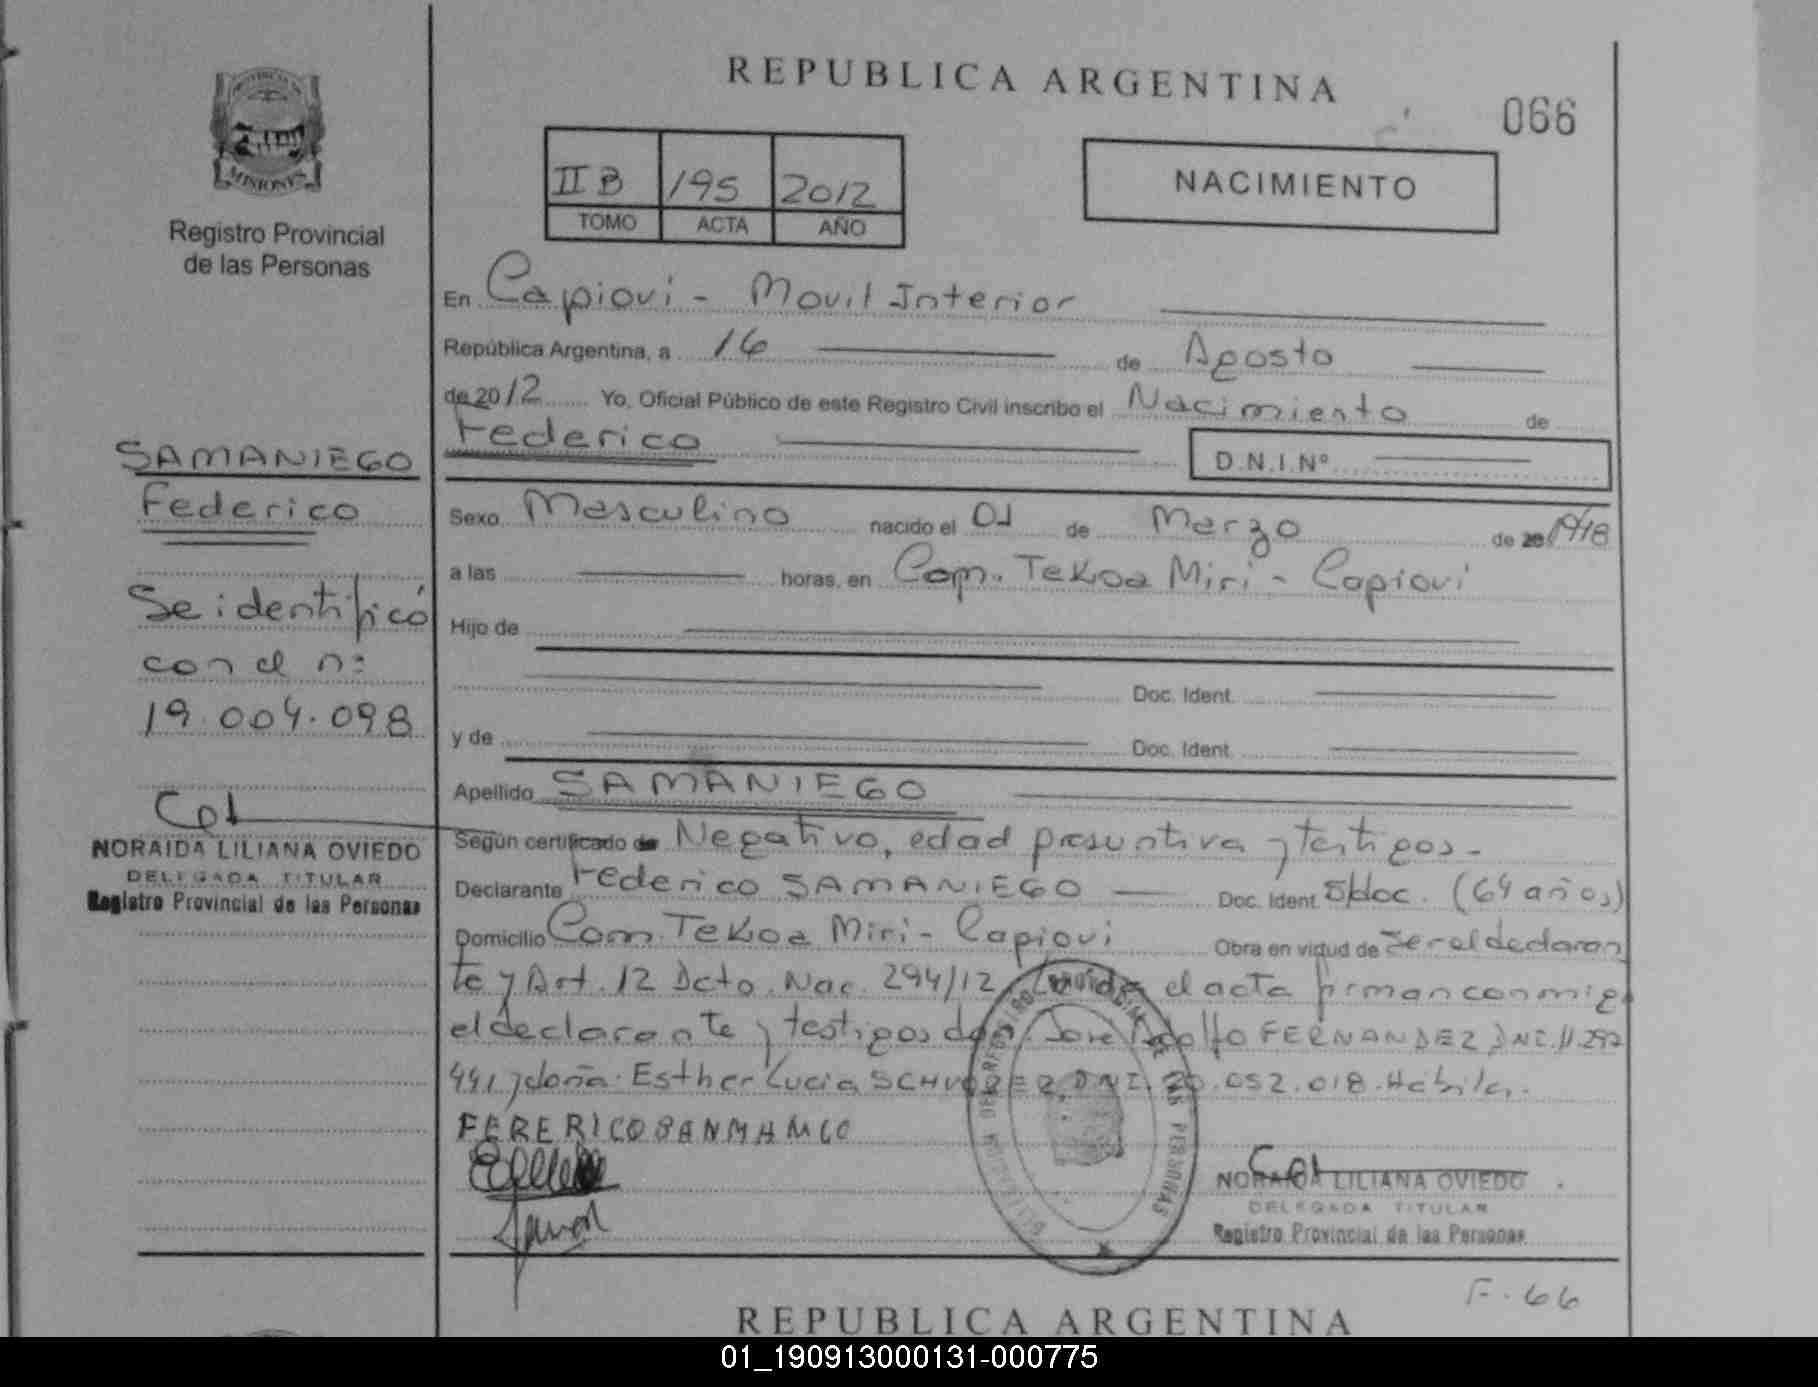 REPUBLICA ARGENTINA
066
MISIONES
Registro Provincial
de las Personas
II B 195 2012
TOMO ACTA AÑO
NACIMIENTO
En Capiovi - Movil Interior
República Argentina, a 16 de Agosto
de 2012 Yo, Oficial Público de este Registro Civil inscribo el Nacimiento de
Federico
D.N.I.Nº
SAMANIEGO
Federico
Se identificó
con el nº
19.004.098
NORAIDA LILIANA OVIEDO
DELEGADA TITULAR
Registro Provincial de las Personas
Sexo Masculino nacido el 01 de Marzo de 1948
a las horas, en Com. Tekoa Miri - Capiovi
Hijo de
Doc. Ident.
y de Doc. Ident.
Apellido SAMANIEGO
Según certificado de Negativo, edad presuntiva y testigos -
Declarante Federico SAMANIEGO Doc. Ident S/doc. (64 años)
Domicilio Com. Tekoa Miri - Capiovi Obra en virtud de ser el declaran
te y Art. 12 Dcto. Nac. 294/12 Leída el acta firman conmigo
el declarante y testigos don: Jose Adolfo FERNANDEZ DNI. 11.292
441 y doña: Esther Lucia DNI. 20.052.018. Hábiles.
NORAIDA LILIANA OVIEDO
DELEGADA TITULAR
Registro Provincial de las Personas
F. 66
REPUBLICA ARGENTINA
01_190913000131-000775